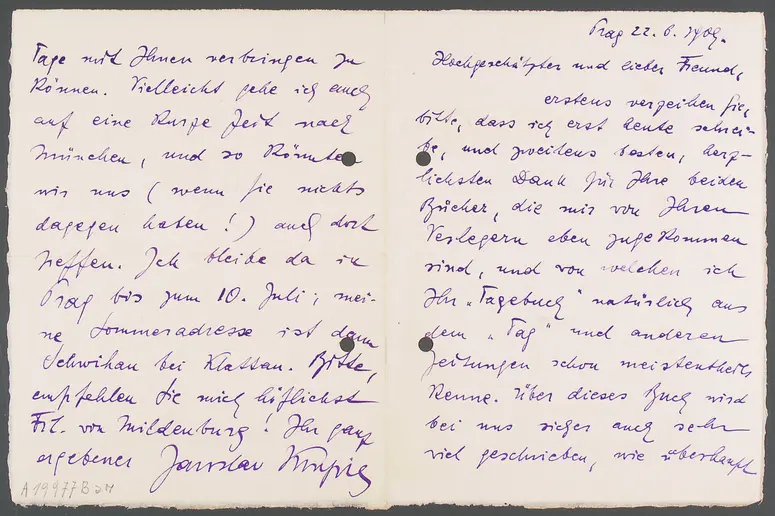 Prag 22. 6. 1909.
Hochgeschätzter und lieber Freund,
erstens verzeihen Sie,
bitte, dass ich erst heute schrei-
be, und zweitens besten, herz-
lichsten Dank für Ihre beiden
Bücher, die mir von Ihren
Verlegern eben zugekommen
sind, und von welchen ich
Ihr „Tagebuch" natürlich aus
dem „Tag" und anderen
Zeitungen schon meistentheils
kenne. Über dieses Buch wird
bei uns sicher auch sehr
viel geschrieben, wie überhaupt
Tage mit Ihnen verbringen zu
können. Vielleicht gehe ich auch
auf eine kurze Zeit nach
München, und so könnten
wir uns (wenn Sie nichts
dagegen haben!) auch dort
treffen. Ich bleibe da in
Prag bis zum 10. Juli; mei-
ne Sommeradresse ist dann
Schwihau bei Klattau. Bitte,
empfehlen Sie mich höflichst
Frl. von Mildenburg! Ihr ganz
ergebener Jaroslav Kvapil
A 19977 BaM